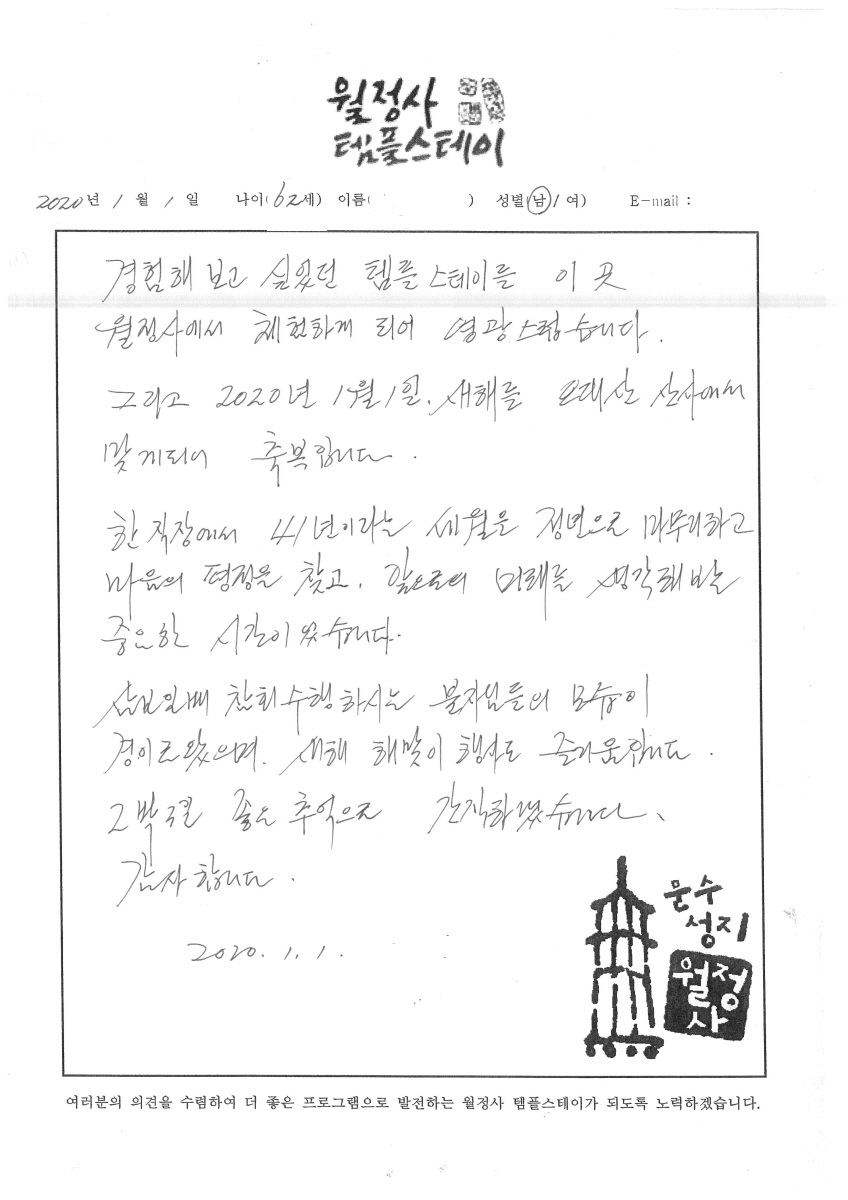 월정사
템플스테이
2020년 1월 1일 나이(62세) 이름( ) 성별(남/여) E-mail :
경험해 보고 싶었던 템플스테이를 이 곳
월정사에서 체험하게 되어 영광스럽습니다.
그리고 2020년 1월 1일. 새해를 오대산 산사에서
맞게되어 축복입니다.
한 직장에서 41년이라는 세월을 정년으로 마무리하고
마음의 평정을 찾고. 앞으로의 미래를 생각해 보는
중요한 시간이었습니다.
삼보일배 참회수행하시는 불자님들의 모습이
경이로왔으며. 새해 해맞이 행사도 즐거움입니다.
2박3일 좋은 추억으로 간직하겠습니다.
감사합니다.
2020. 1. 1.
문수
성지
월정
사
여러분의 의견을 수렴하여 더 좋은 프로그램으로 발전하는 월정사 템플스테이가 되도록 노력하겠습니다.